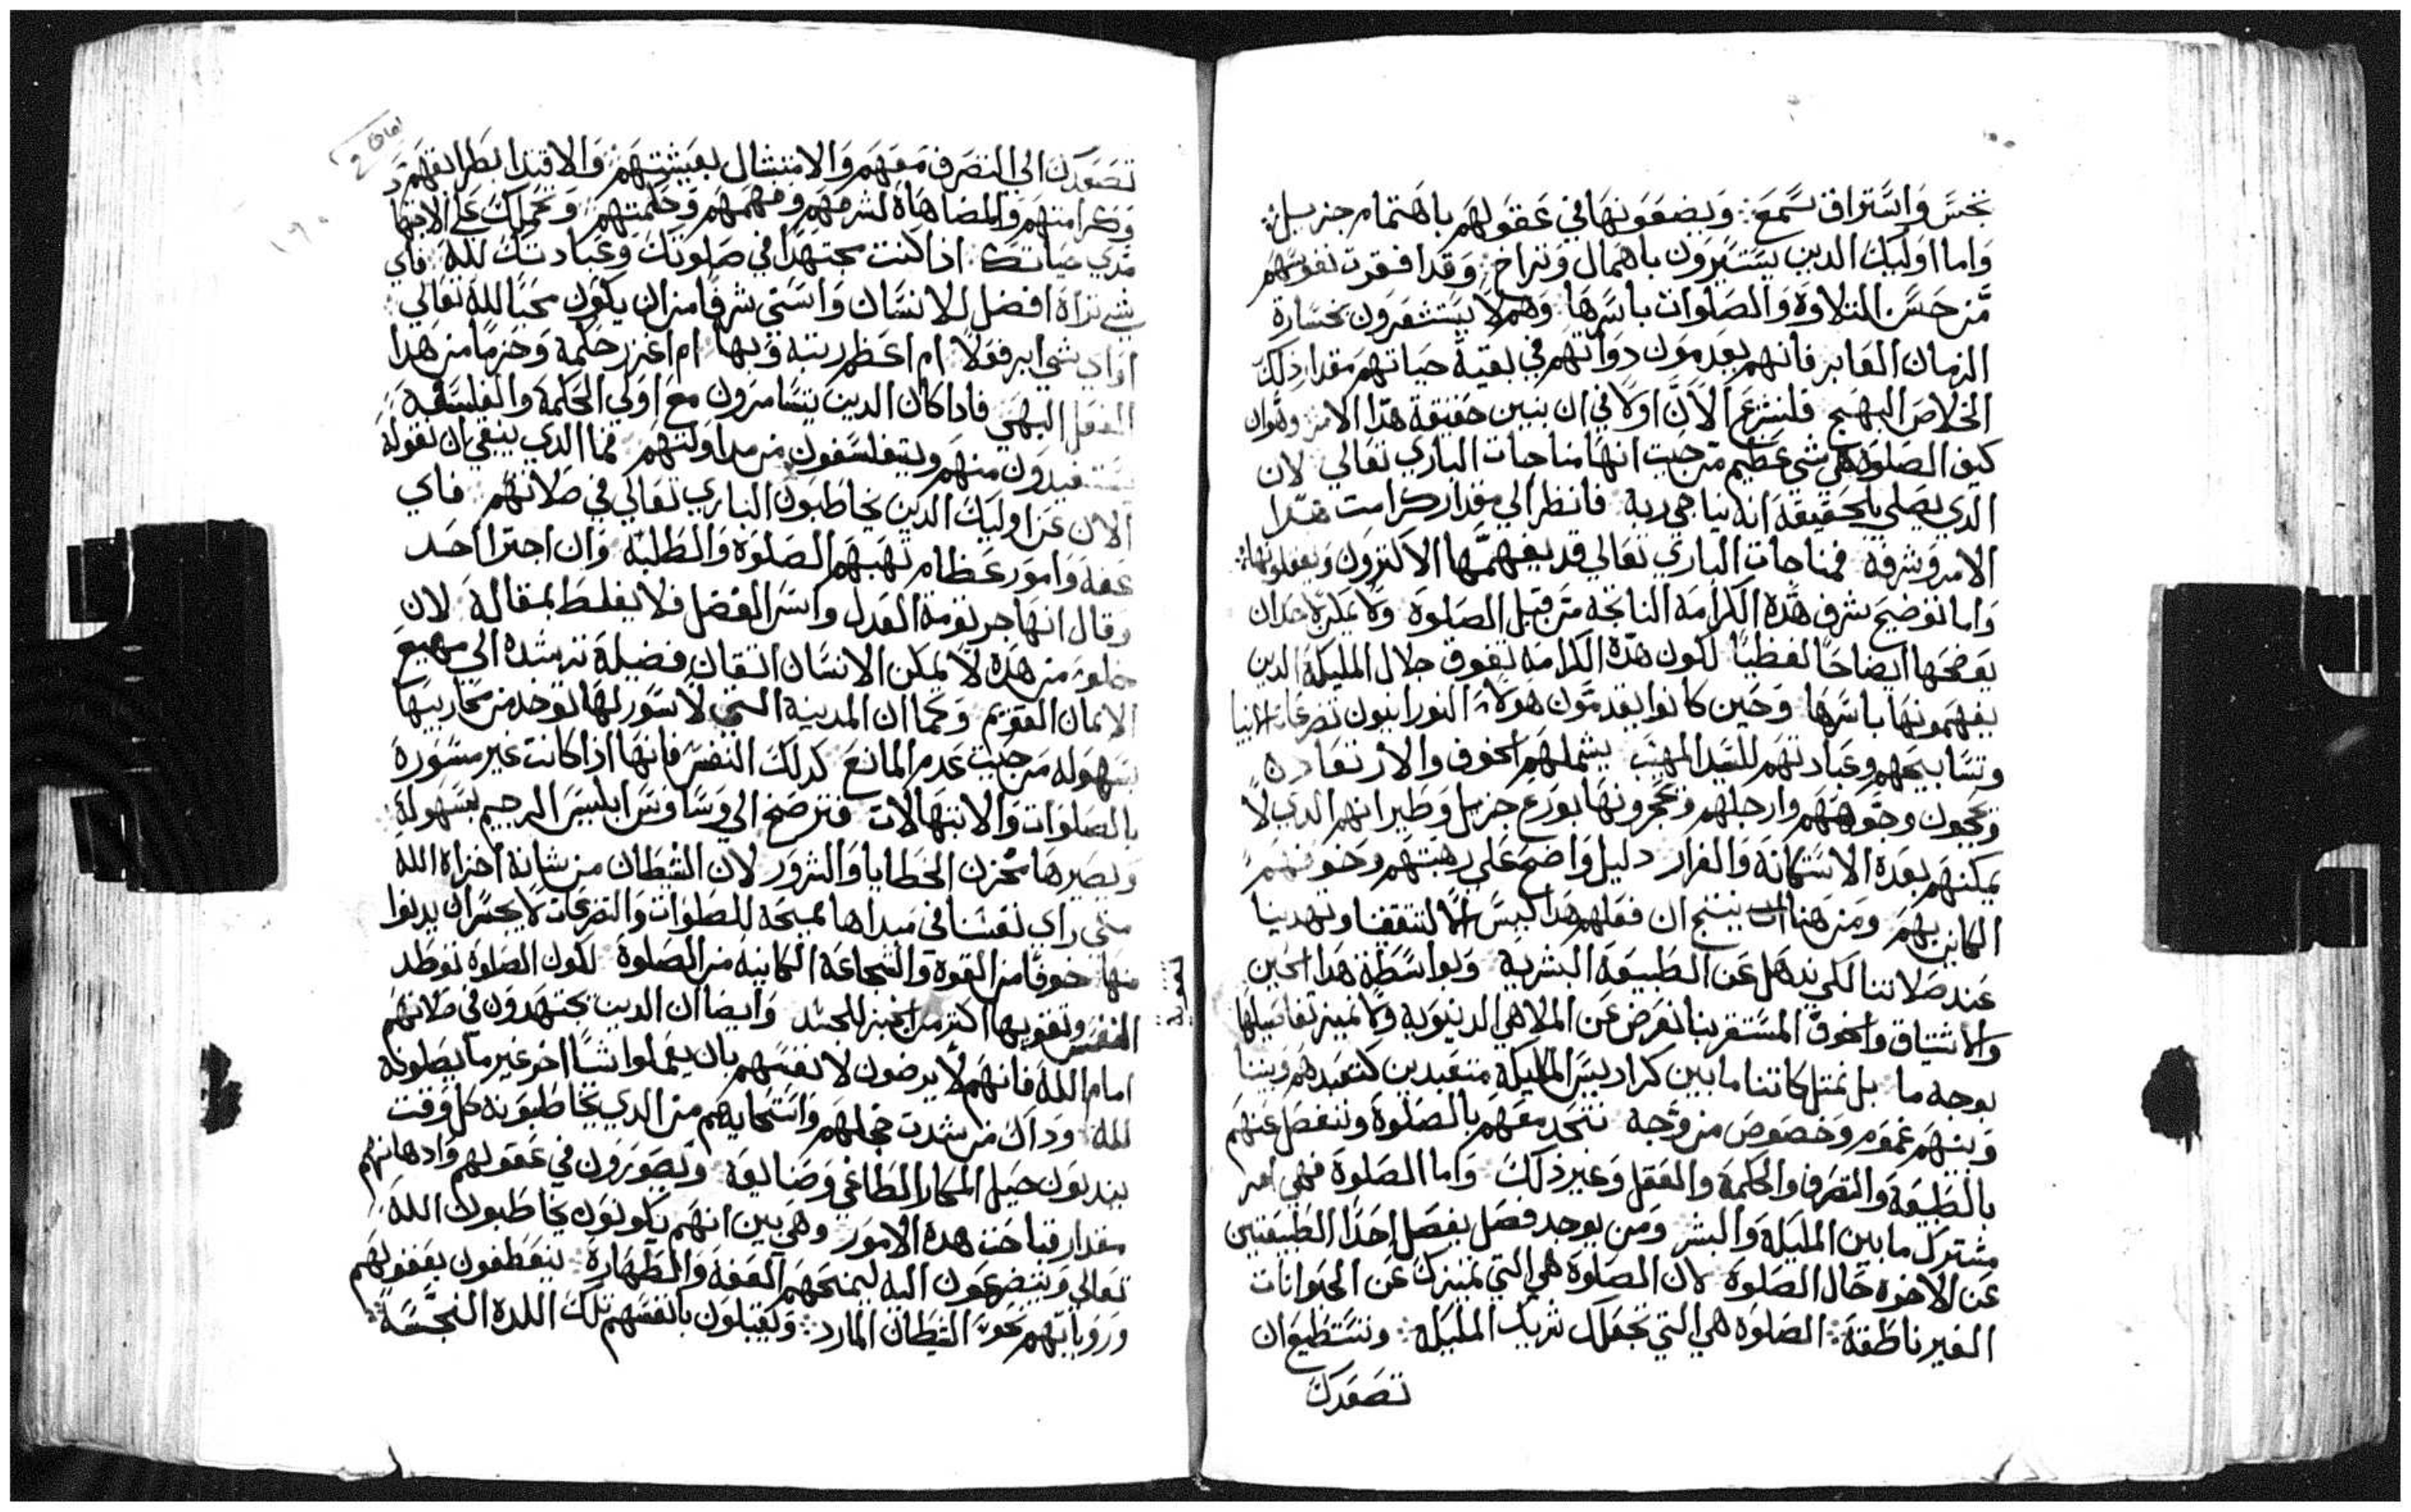 بحس واستراق سمع: ويضعونها في عقولهم باهتمام جزيل:
واما اوليك الدين يستسيرون باهمال وتراخ: وقد افقرت نفوسهم
من حسن التلاوة والصلوات باسرها وهم لا يستشعرون بخسارة
الزمان الغابر فانهم يعدمون دواتهم في بقية حياتهم مقدار دلك
الخلاص البهيج فلنشرع الان اولا في ان نبين حقيقة هدا الامر وهوان
كيف الصلوة هي شي عظيم من حيت انها مناجات الباري تعالي لان
الدي يصلي بالحقيقة انه يناجي ربه فانظر الي مقدار كرامت هدا
الامر وشرفه فمناجات الباري تعالي قد يفهمها الاكترون ويعقلونها:
واما توضيح شرف هده الكرامة الناتجة من قبل الصلوة ولا يمكن لاحد ان
يوضحها ايضاحا لفظيا لكون هده الكرامة تفوق جلال المليكة الدين
يفهمونها باسرها وحين كانوا يقدمون هولاء النورانيون تضرعات الانبيا
وتسابيحهم وعبادتهم للسيد المهيب يشملهم الخوف والارتعاد
ويحجون وجوههم وارجلهم ويحجرونها بورع جزيل وطيرانهم الدي لا
يمكنهم بعده الاستكانة والفرار دليل واضح علي رهبتهم وخوفهم
الكاين بهم ومن هنا ينتج ان فعلهم هدا ليس الا لتثقفنا وتهدينا
عند صلاتنا لكي ندهل عن الطبيعة البشرية وبواسطة هدا الحين
والاشتياق والخوف المستقر بنا نعرض عن الملاهي الدنيوية ولا نميز تفاصيلها
بوجه ما بل نمتل كاننا ما بين كراديس المليكة متعبدين كتعبدهم وبيننا
وبينهم عموم وخصوص من وجه نتحد معهم بالصلوة وننفصل عنهم
بالطبيعة والتصرف والحكمة والعقل وغير ذلك واما الصلوة فهي امر
مشترك ما بين المليكة والبشر ومن يوجد فصل يفصل احدا الطبيعتين
عن الاخره حال الصلوة لان الصلوة هي التي تميزك عن الحيوانات
الغير ناطقة: الصلوة هي التي تجعلك شريك المليكة: وتستطيع ان
تصعدك
تصعدك الي التصرف معهم والامتشال بعيشتهم والاقتدا بطرايقهم
وكرامتهم والمضاهاة لشرفهم وفهمهم وحكمتهم وتحملك علي الاجتهاد
مدي حياتك ادا كنت مجتهدا في صلوتك وعبادتك لله فاي
شي تراه افضل للانسان واسني شرفا من ان يكون محبا لله تعالي:
او اي شي ابر فعلا ام اعظم رتبة وبها ام اغزر حكمة وحزما من هدا
الفعل البهي فادا كان الدين يتسامرون مع اولي الحكمة والفلسفة
يستفيدون منهم ويتفلسفون من مداولتهم فما الدي ينبغي ان نقوله
الان عن اوليك الدين يخاطبون الباري تعالي في صلاتهم فاي
عفة وامور عظام تهبهم الصلوة والطلبة وان اجترا احد
وقال انها جرثومة العدل واس الفضل فلا يغلط بمقاله لان
خلوة من هده لا يمكن الانسان اتقان فضيلة ترشده الي مهيع
الايمان القويم وكما ان المدينة التي لا سور لها توخد من محاربيها
بسهولة من حيت عدم المانع كدلك النفس فانها اذا كانت غير مسورة
بالصلوات والابتهالات فترضخ الي وساوس ابليس الرجيم بسهولة:
ويصيرها مخزن الخطايا والشرور لان الشيطان من شانه اخزاه الله
متي راي نفسا في مبداها مميحة للصلوات والتضرعات لا يجسر ان يدنوا
منها خوفا من القوة والشجاعة الكاينة من الصلوة لكون الصلوة توطد
النفس وتقويها اكتر من الخبز للجسد وايضا ان الدين يجتهدون في صلاتهم
امام الله فانهم لا يرضون لانفسهم بان يعملوا شيا اخر غير ما يصلونه
لله وداك من شدت خجلهم واستحايهم من الدي يخاطبونه كل وقت
يندبون حيل المكار الطاغي وضاليعه ويصورون في عقولهم وادهانهم
مقدار قباحت هده الامور وهي بين انهم يكونون يخاطبون الله
تعالي ويتضرعون اليه ليمنحهم العفة والطهارة: ينعطفون بعقولهم
ورواياتهم نحو الشيطان المارد: ويقتبلون بانفسهم تلك اللدة النجسة: